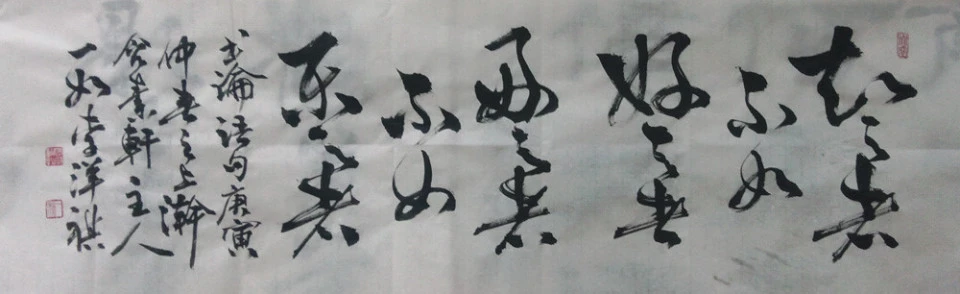 知之者
不如
好之者
好之者
不如
乐之者
书論语句庚寅
仲春之上澣
軒主人
一如李洋祺